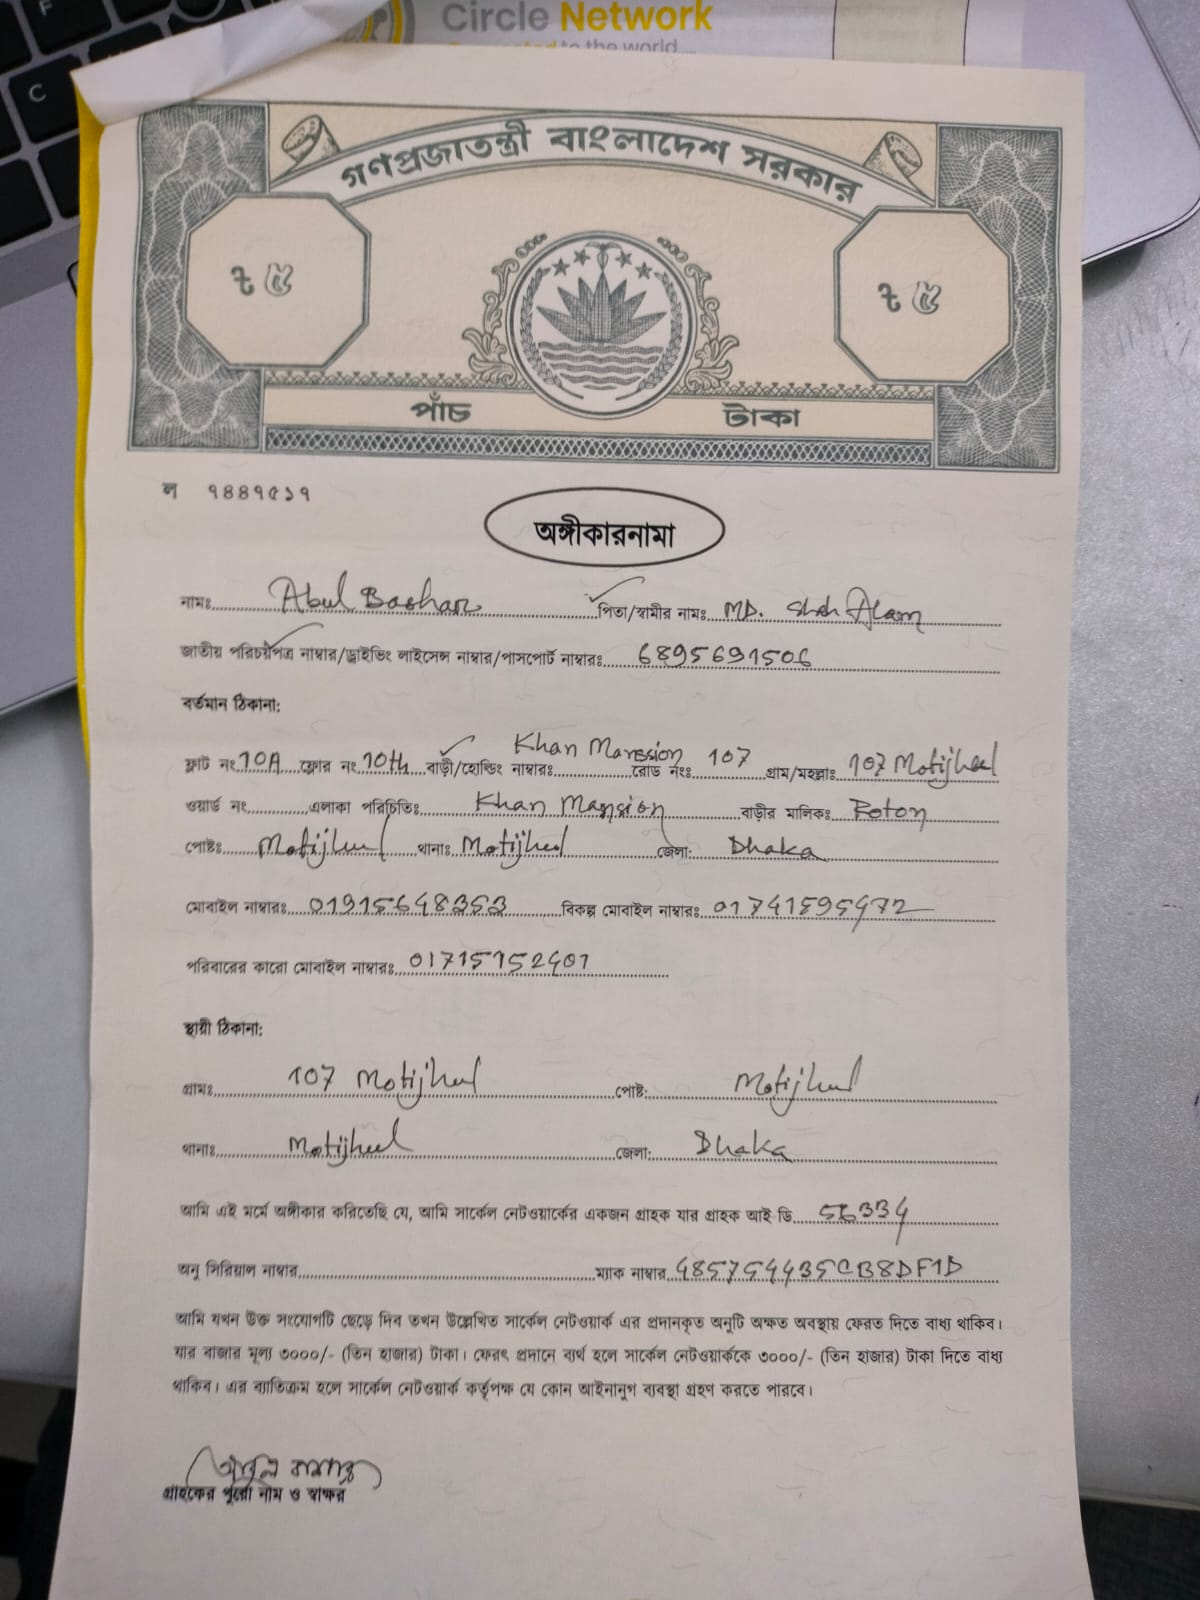 Circle Network
to the world...
গণপ্রজাতন্ত্রী বাংলাদেশ সরকার
৳ ৫ ৳ ৫
পাঁচ টাকা
ল ৭৪৪৭৫১৭
অঙ্গীকারনামা
নামঃ Abul Bashar পিতা/স্বামীর নামঃ MD. Shah Alam
জাতীয় পরিচয়পত্র নাম্বার/ড্রাইভিং লাইসেন্স নাম্বার/পাসপোর্ট নাম্বারঃ 6895691506
বর্তমান ঠিকানা:
ফ্লাট নং 10A ফ্লোর নং 10th বাড়ী/হোল্ডিং নাম্বারঃ Khan Mansion রোড নংঃ 107 গ্রাম/মহল্লাঃ 107 Motijheel
ওয়ার্ড নং এলাকা পরিচিতিঃ Khan Mansion বাড়ীর মালিকঃ Roton
পোষ্টঃ Motijheel থানাঃ Motijheel জেলা: Dhaka
মোবাইল নাম্বারঃ বিকল্প মোবাইল নাম্বারঃ
পরিবারের কারো মোবাইল নাম্বারঃ
স্থায়ী ঠিকানা:
গ্রামঃ 107 Motijheel পোষ্ট: Motijheel
থানাঃ Motijheel জেলা: Dhaka
আমি এই মর্মে অঙ্গীকার করিতেছি যে, আমি সার্কেল নেটওয়ার্কের একজন গ্রাহক যার গ্রাহক আই ডি 56334
অনু সিরিয়াল নাম্বার ম্যাক নাম্বার 485754435CB8DF1D
আমি যখন উক্ত সংযোগটি ছেড়ে দিব তখন উল্লেখিত সার্কেল নেটওয়ার্ক এর প্রদানকৃত অনুটি অক্ষত অবস্থায় ফেরত দিতে বাধ্য থাকিব।
যার বাজার মূল্য ৩০০০/- (তিন হাজার) টাকা। ফেরৎ প্রদানে ব্যর্থ হলে সার্কেল নেটওয়ার্ককে ৩০০০/- (তিন হাজার) টাকা দিতে বাধ্য
থাকিব। এর ব্যতিক্রম হলে সার্কেল নেটওয়ার্ক কর্তৃপক্ষ যে কোন আইনানুগ ব্যবস্থা গ্রহণ করতে পারবে।
আবুল বাশার
গ্রাহকের পুরো নাম ও স্বাক্ষর